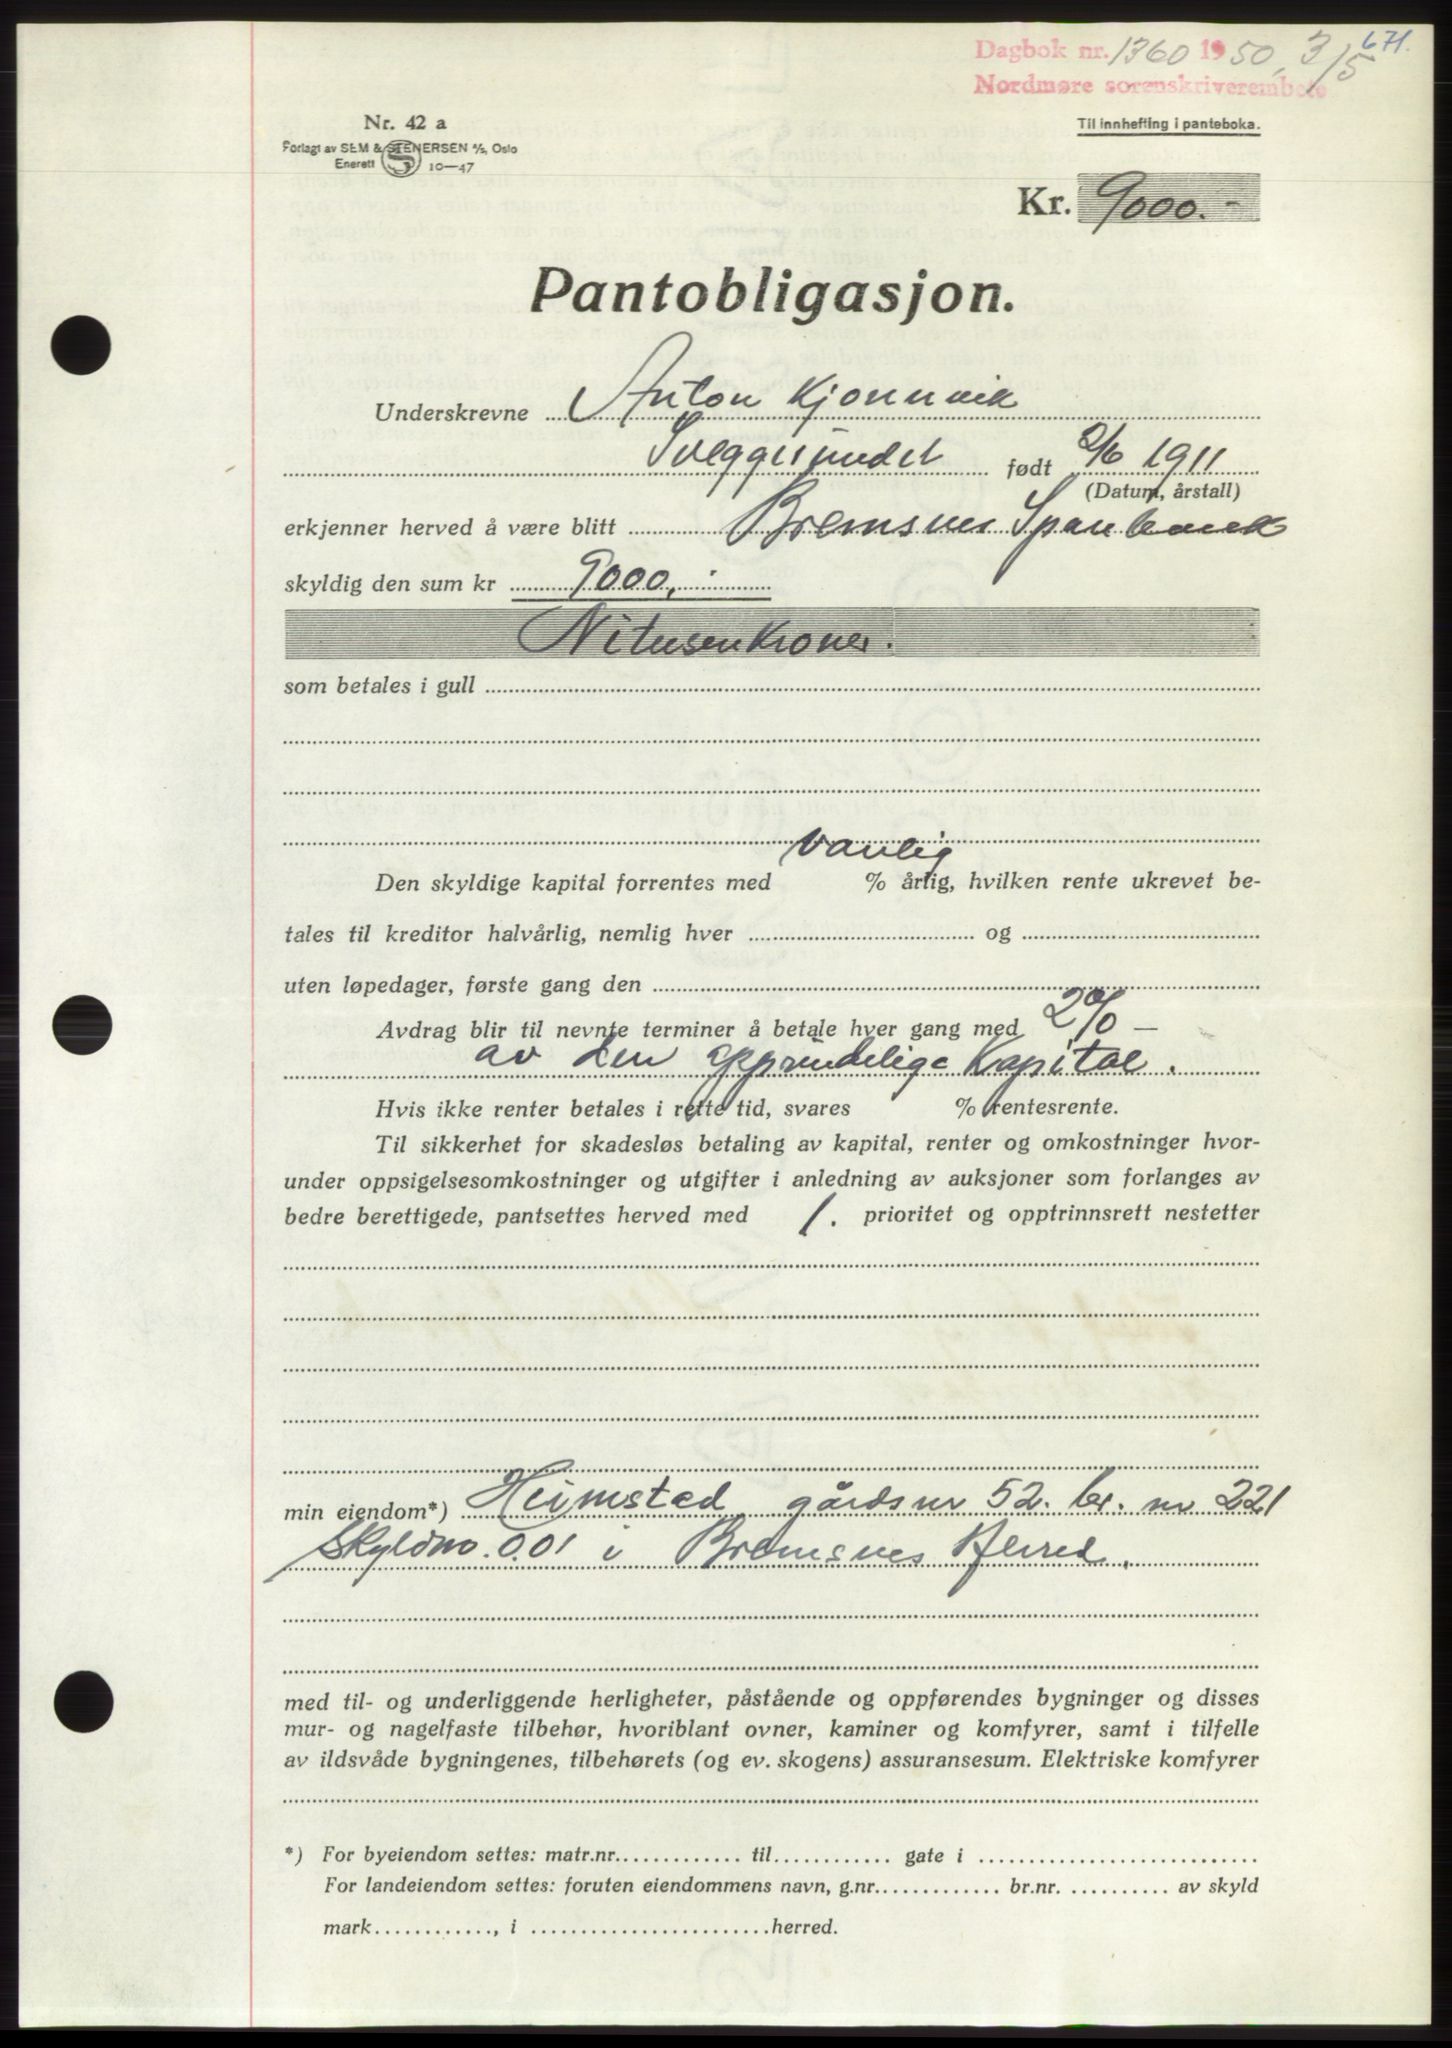 671.
Dagbok nr. 1360 1950, 3/5
Nordmøre sorenskriverembete
Nr. 42 a
Forlagt av SEM & STENERSEN A/S, Oslo
Enerett 10—47
Til innhefting i panteboka.
Kr. 9000.-
Pantobligasjon.
Underskrevne Anton Kjønnvik
Sveggesundet født 2/6 1911
(Datum, årstall)
erkjenner herved å være blitt Bremsnes Sparebank
skyldig den sum kr 9000,-
Nitusenkroner.
som betales i gull
vanlig
Den skyldige kapital forrentes med % årlig, hvilken rente ukrevet be-
tales til kreditor halvårlig, nemlig hver og
uten løpedager, første gang den
Avdrag blir til nevnte terminer å betale hver gang med 2% —
av den opprindelige Kapital.
Hvis ikke renter betales i rette tid, svares % rentesrente.
Til sikkerhet for skadesløs betaling av kapital, renter og omkostninger hvor-
under oppsigelsesomkostninger og utgifter i anledning av auksjoner som forlanges av
bedre berettigede, pantsettes herved med 1. prioritet og opptrinnsrett nestetter
min eiendom*) Heimstad gårdsnr 52. br. nr 221
Skyldm. 0.01 i Bremsnes Herred.
med til- og underliggende herligheter, påstående og oppførendes bygninger og disses
mur- og nagelfaste tilbehør, hvoriblant ovner, kaminer og komfyrer, samt i tilfelle
av ildsvåde bygningenes, tilbehørets (og ev. skogens) assuransesum. Elektriske komfyrer
*) For byeiendom settes: matr.nr. til gate i
For landeiendom settes: foruten eiendommens navn, g.nr. br.nr. av skyld
mark , i herred.